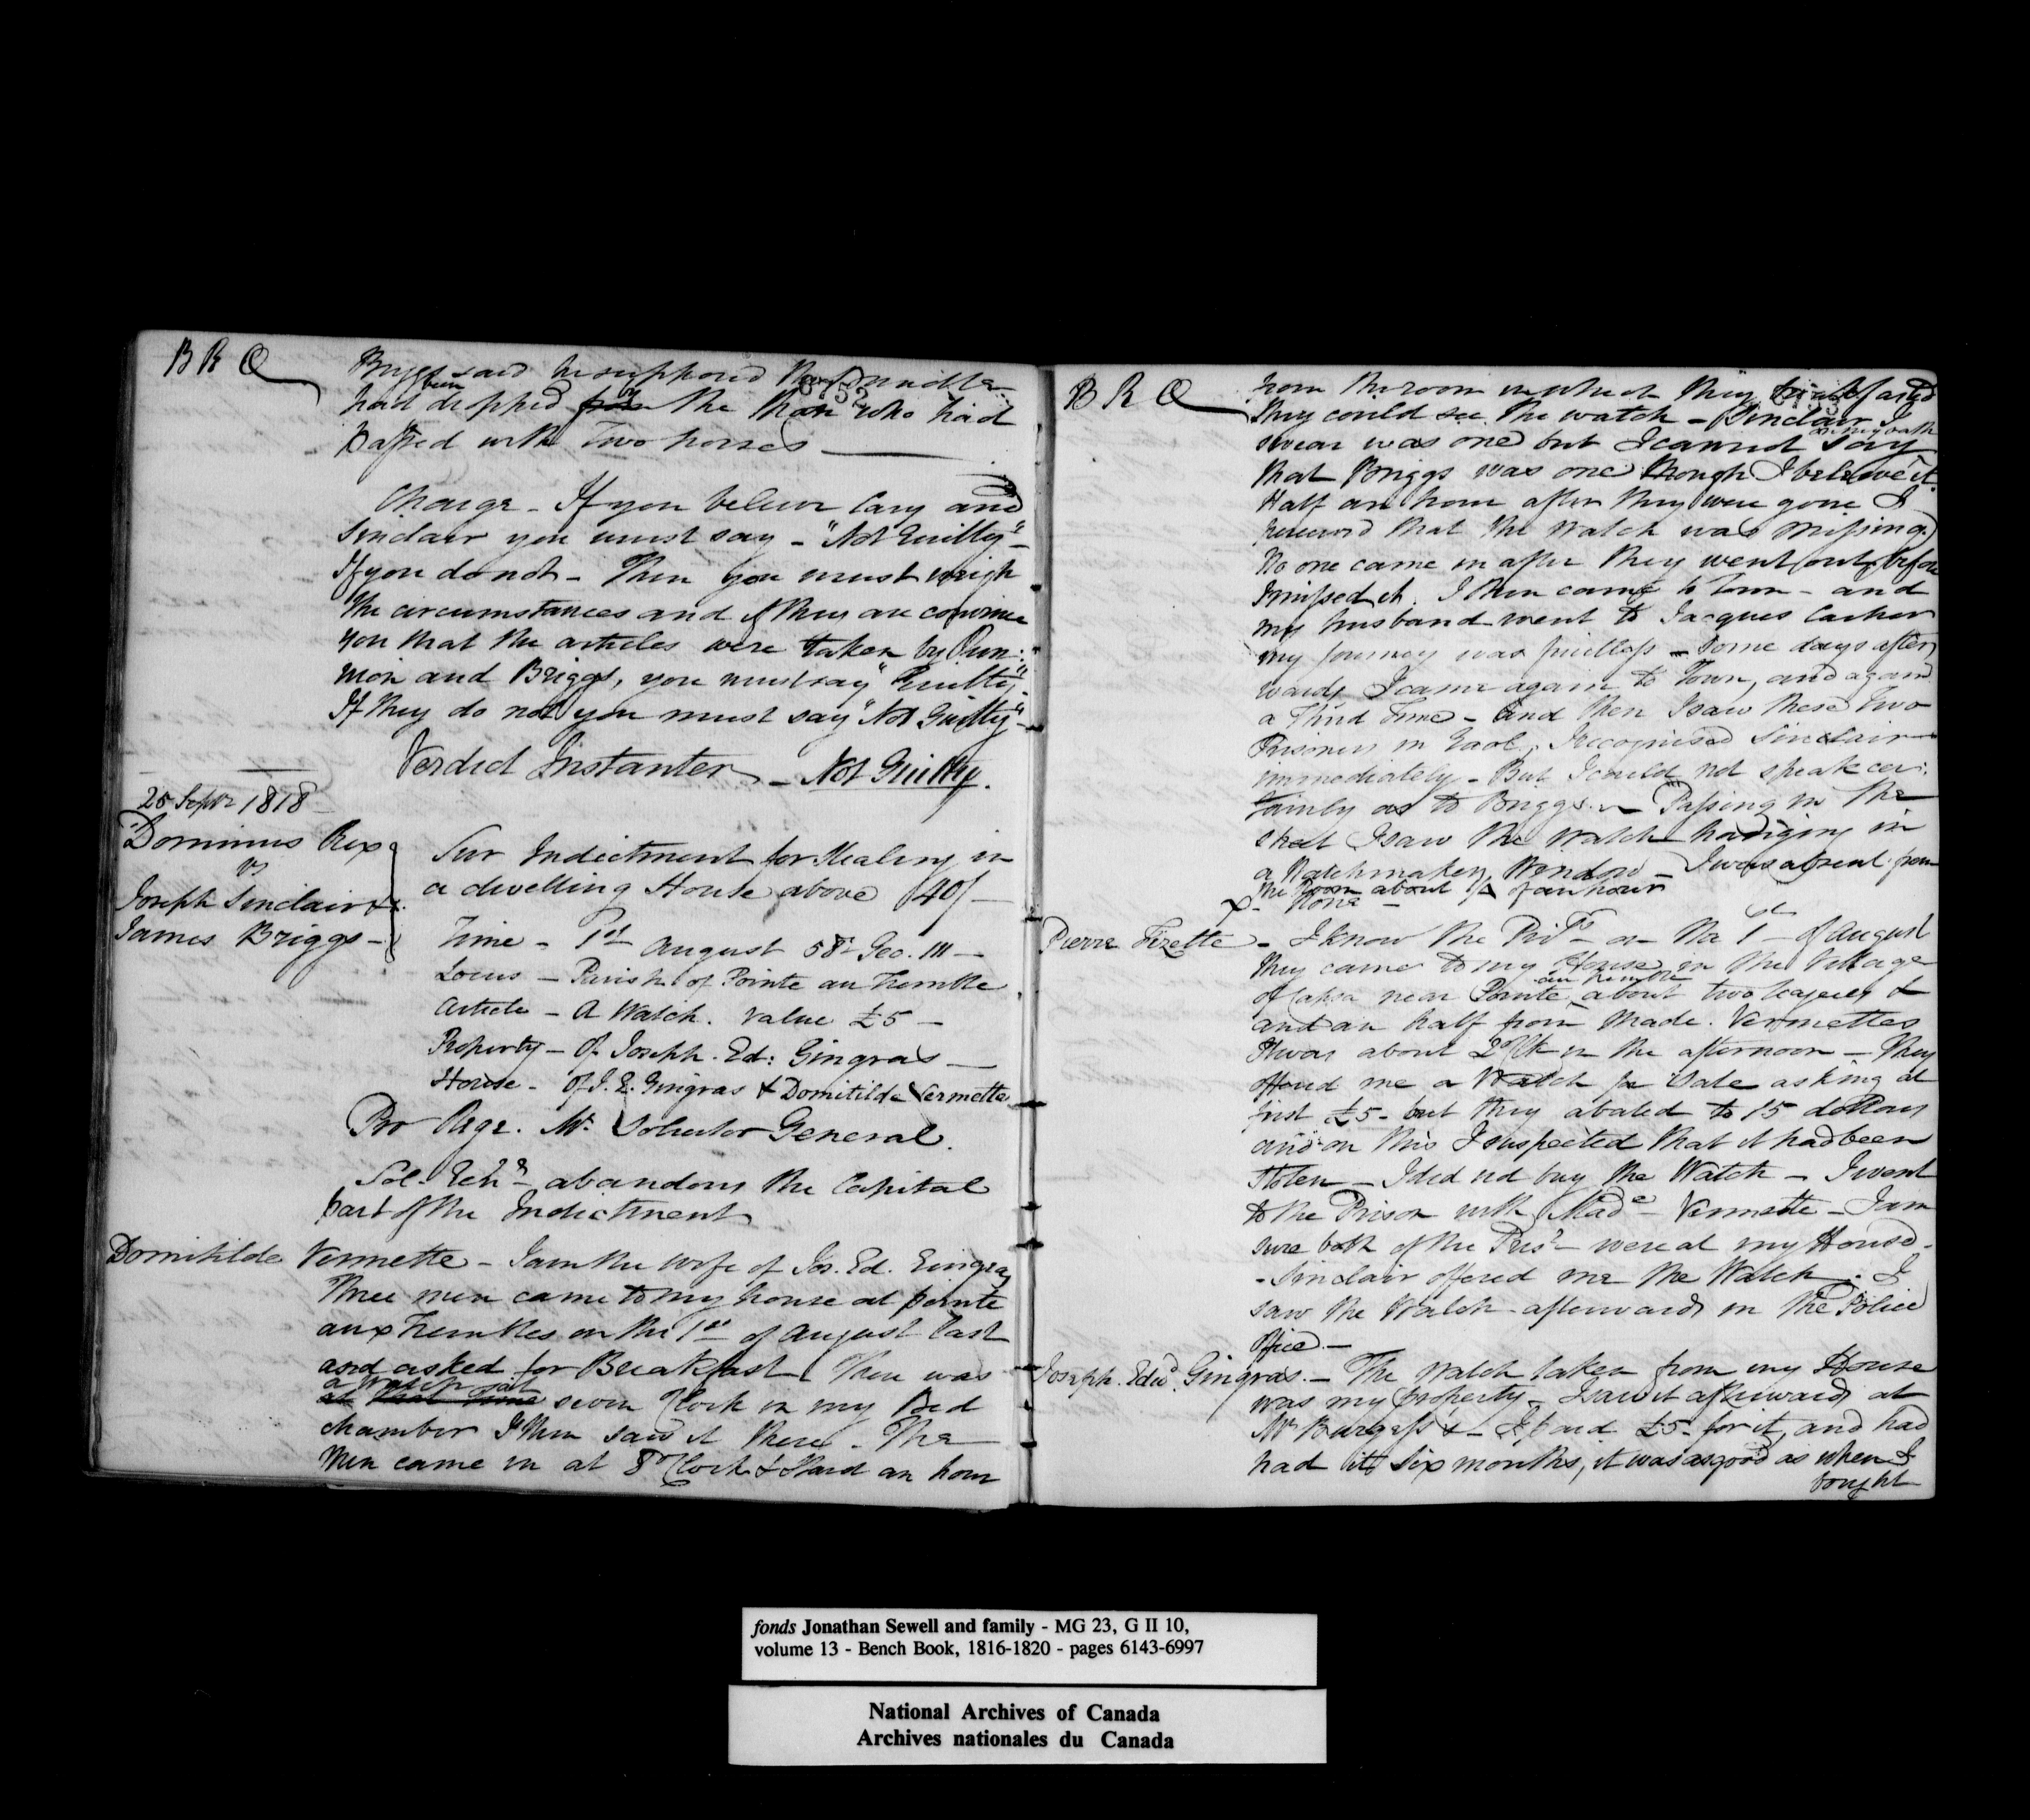 B R Q
Briggs said he supposed the bundle
6752
been
had dropped from by the man who had
passed with two horses
Charge - If you believe Cary and
Sinclair you must say - "Not Guilty" -
If you do not - Then you must weigh
the circumstances and if they are convince
you that the articles were taken by
mon and Briggs, you must say "Guilty" -
If they do not you must say "Not Guilty" -
Verdict Instanter - Not Guilty.
25 Septr 1818
Dominus Rex
vs
Joseph Sinclair &
James Briggs -
Sur Indictment for stealing in
a dwelling House above 40/-
Time - 1st August 58th Geo. III -
Locus - Parish of Pointe au Tremble
Article - A Watch. value £5 -
Property - Of Joseph. Ed: Gingras -
House - Of J. E. Gingras & Domitilde Vermette
Pro Rege. Mr. Solicitor General.
Sol. Genl - abandons the Capital
part of the Indictment
Domitilde Vermette - I am the wife of Jos. Ed. Gingras
Three men came to my house at pointe
aux Trembles on the 1st of August last
and asked for Breakfast. There was
a watch
at that time seven o'Clock in my Bed
chamber I then saw it there. The
Men came in at 8 o'Clock & staid an hour
B R Q
from the room in which they breakfasted
they could see the watch - Sinclair I
on my oath
swear was one but I cannot say
that Briggs was one though I believe it.
Half an hour after they were gone I
perceived that the Watch was missing.
No one came in after they went out before
I missed it. I then came to Town - and
my husband went to Jacques Cartier
my journey was fruitless - Some days after
wards I came again to Town, and again
a Third Time - and then I saw these Two
Prisoners in Gaol, I recognised Sinclair
immediately - But I could not speak cer:
tainly as to Briggs. - Passing in the
street I saw the Watch hanging in
a Watchmakers Window - I was absent from
the Room about 1/4 of an hour
X - None -
Pierre Fizette - I know the Prisrs - on the 1st of August
they came to my House in the Village
au tremble
of near Pointe about two leagues &
and an half from Made. Vermettes
It was about 2 o'Clk in the afternoon - They
offered me a Watch for Sale asking at
first £5 - but they abated to 15 dollars
and on this I suspected that it had been
stolen - I did not buy the Watch - I went
to the Prison with Made Vermette - I am
sure both of the Prisrs were at my House.
- Sinclair offered me the Watch. I
saw the Watch afterwards in the Police
Office. -
Joseph. Edwd. Gingras. - The Watch taken from my House
was my property, I saw it afterwards at
Mr Burgess's - I paid £5 - for it, and had
had it six months, it was as good as when I
bought
fonds Jonathan Sewell and family - MG 23, G II 10,
volume 13 - Bench Book, 1816-1820 - pages 6143-6997
National Archives of Canada
Archives nationales du Canada